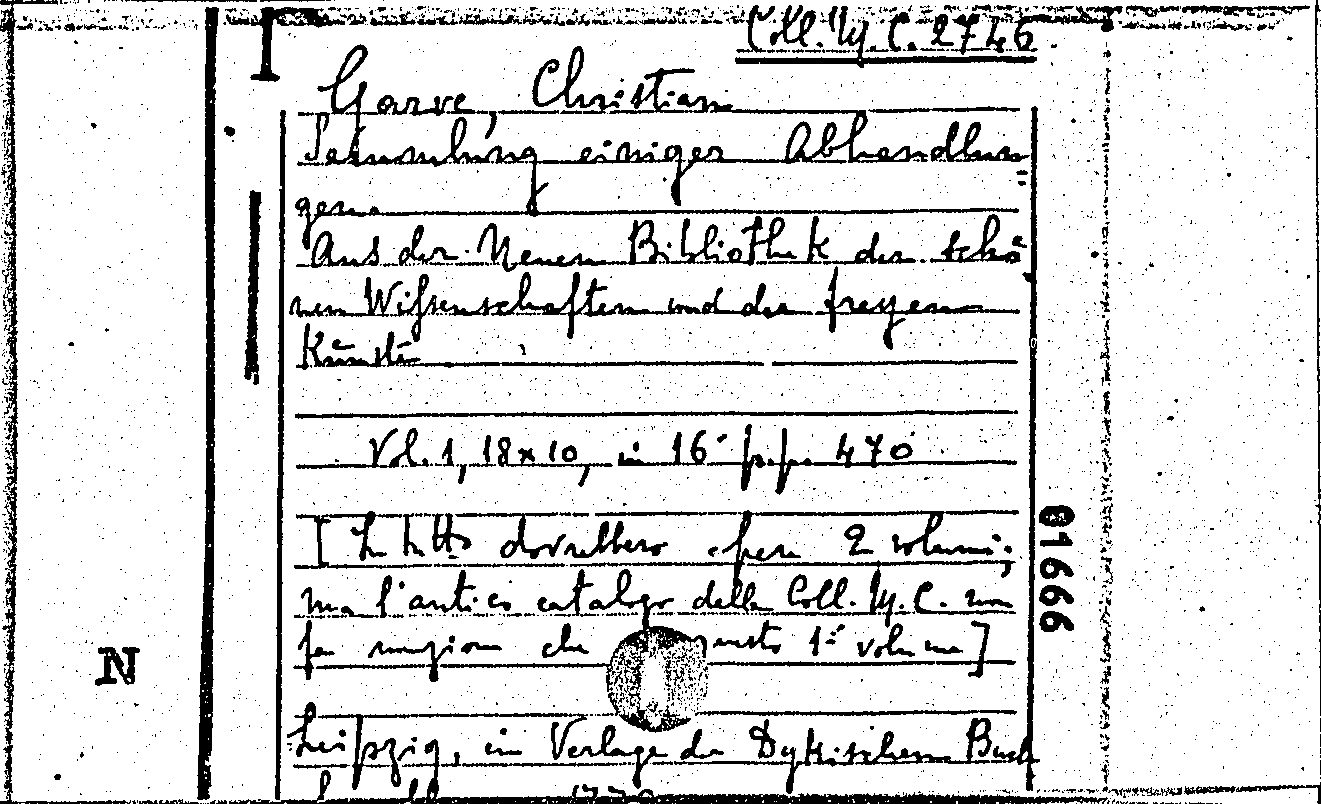 Coll. M. C. 2746
Garve, Christian
Sammlung einiger Abhandlun=
gen.
Aus der Neuen Bibliothek der schö
nen Wissenschaften und der freyen
Künste
Vol. 1, 18x10, in 16° pp. 470
[In tutto dovrebbero essere 2 volumi;
ma l'antico catalogo della Coll. M. C. non
fa menzione che questo 1° volume]
01666
N
Leipzig, im Verlage der Dykischen Buch